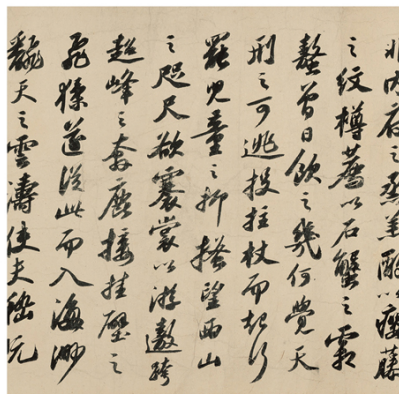 非內府之蒸羔酌以癭藤
之紋樽薦以石蟹之霜
螯曾日飲之幾何覺天
刑之可逃投拄杖而起行
罷兒童之抑搔望西山
之咫尺欲褰裳以游遨跨
超峰之奔鹿接挂壁之
飛猱遂從此而入海渺
飜天之雲濤使夫嵇阮